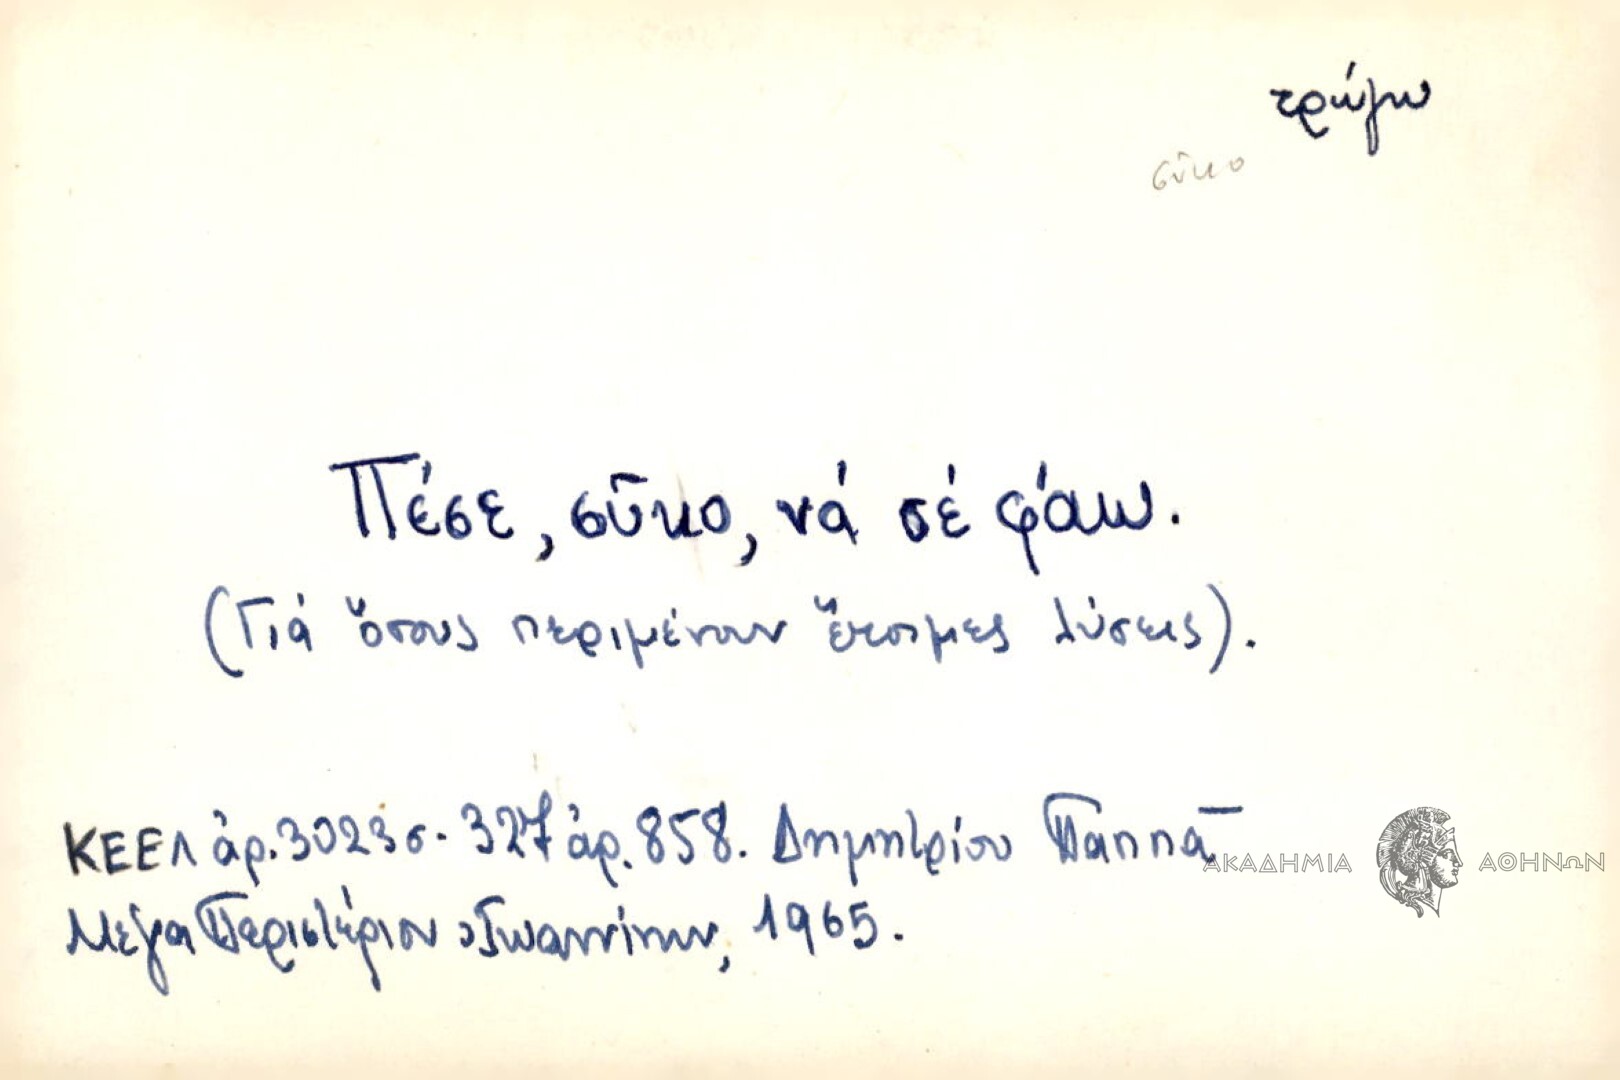 τρώγω
σῦκο
Πέσε, σῦκο, νά σέ φάω.
(Γιά ὅσους περιμένουν ἕτοιμες λύσεις).
ΚΕΕΛ ἀρ. 3023 σ. 327 ἀρ. 858. Δημητρίου Παππᾶ
Μέγα Περιστέριον Ἰωαννίνων, 1965.
ΑΚΑΔΗΜΙΑ ΑΘΗΝΩΝ